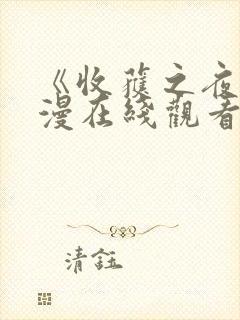 《收蓷之夜
漫在綫觀看
清鈺